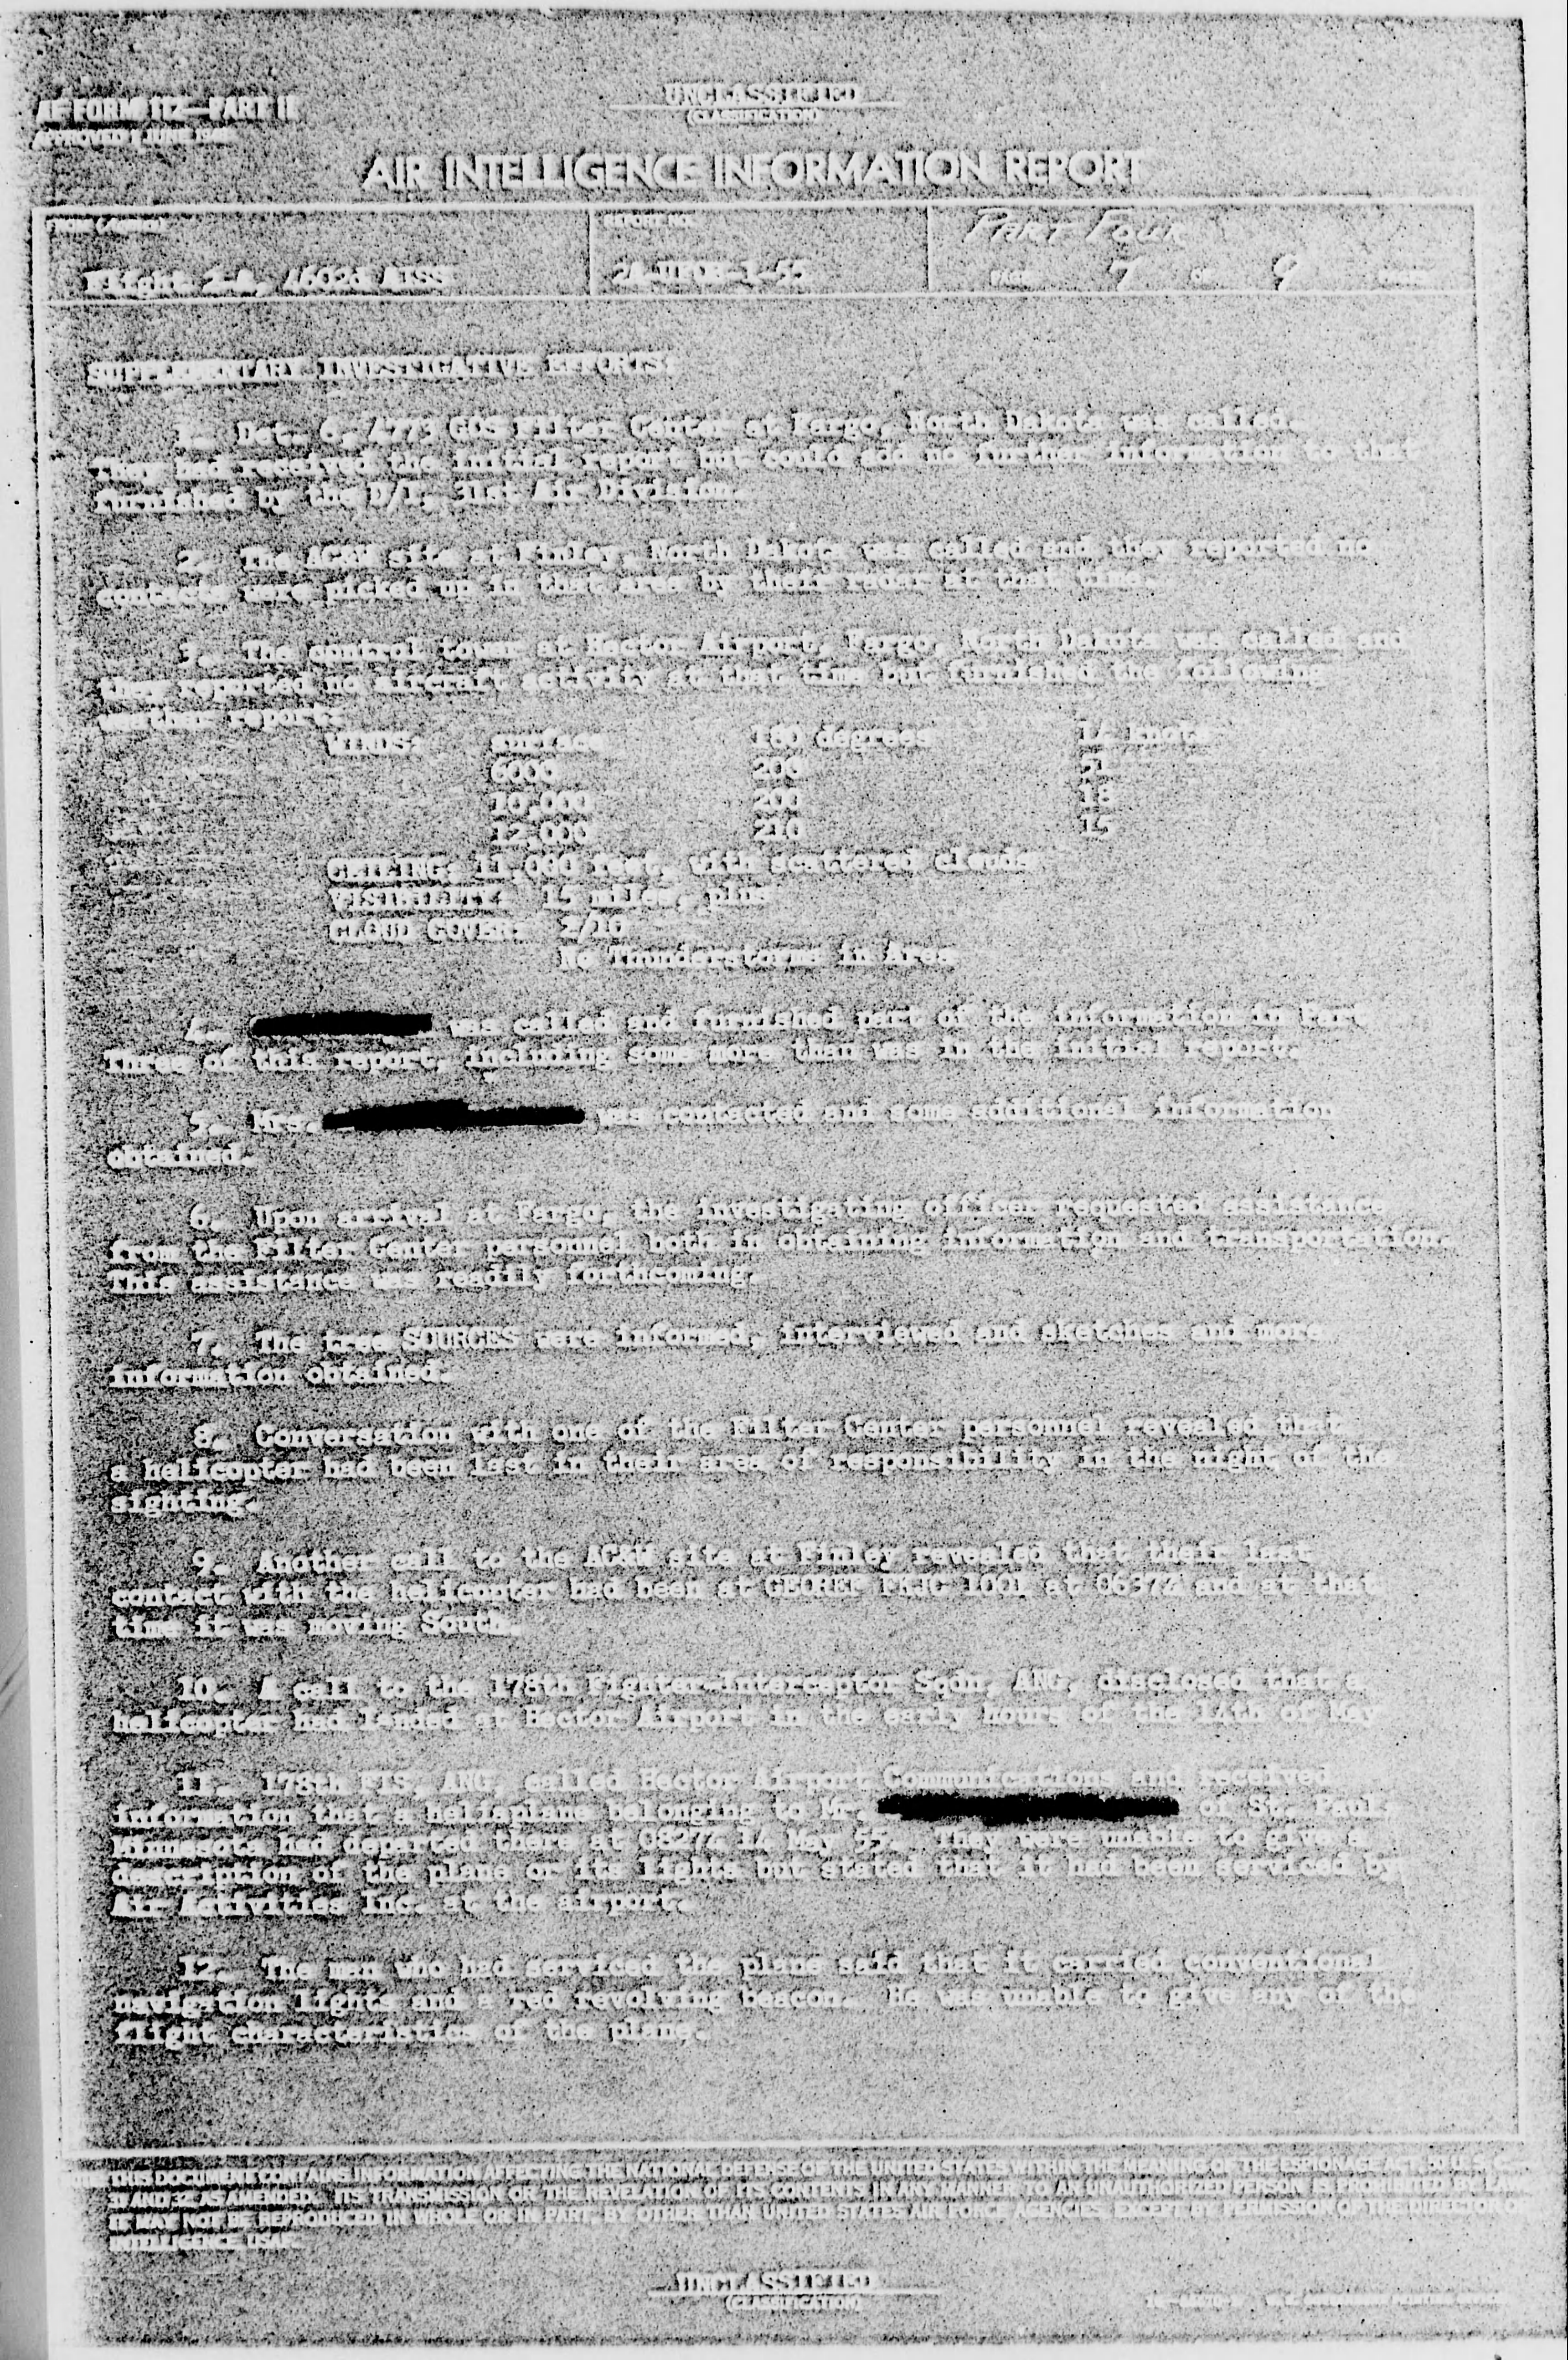 AF FORM 112—PART II
APPROVED 1 JUNE 1948
UNCLASSIFIED
(CLASSIFICATION)
AIR INTELLIGENCE INFORMATION REPORT
REPORT NO.
PART FOUR
Flight 2-A, 4602d AISS
2A-UFOB-1-55
PAGE 7 OF 9
SUPPLEMENTARY INVESTIGATIVE EFFORTS:
1. Det. 6, 4773 GOS Filter Center at Fargo, North Dakota was called.
They had received the initial report but could add no further information to that
furnished by the D/I, 31st Air Division.
2. The AC&W site at Finley, North Dakota was called and they reported no
contacts were picked up in that area by their radar at that time.
3. The control tower at Hector Airport, Fargo, North Dakota was called and
they reported no aircraft activity at that time but furnished the following
weather report:
WINDS: surface 180 degrees 14 knots
6000 200 21
10,000 200 18
12,000 210 15
CEILING: 11,000 feet, with scattered clouds
VISIBILITY: 15 miles, plus
CLOUD COVER: 2/10
No Thunderstorms in Area
4. was called and furnished part of the information in Part
Three of this report, including some more than was in the initial report.
5. Mrs. was contacted and some additional information
obtained.
6. Upon arrival at Fargo, the investigating officer requested assistance
from the Filter Center personnel both in obtaining information and transportation.
This assistance was readily forthcoming.
7. The tree SOURCES were informed, interviewed and sketches and more
information obtained.
8. Conversation with one of the Filter Center personnel revealed that
a helicopter had been last in their area of responsibility in the night of the
sighting.
9. Another call to the AC&W site at Finley revealed that their last
contact with the helicopter had been at GEOREF at and at that
time it was moving South.
10. A call to the 178th Fighter-Interceptor Sqdn, ANG, disclosed that a
helicopter had landed at Hector Airport in the early hours of the 14th of May
11. 178th FIS, ANG, called Hector Airport Communications and received
information that a belonging to Mr. of St. Paul
Minnesota had departed there at 0827Z 14 May 55. They were unable to give a
description of the plane or its lights but stated that it had been serviced by
Air Activities Inc. at the airport.
12. The man who had serviced the plane said that it carried conventional
navigation lights and a red revolving beacon. He was unable to give any of the
flight characteristics of the plane.
THIS DOCUMENT CONTAINS INFORMATION AFFECTING THE NATIONAL DEFENSE OF THE UNITED STATES WITHIN THE MEANING OF THE ESPIONAGE ACT, 50 U.S.C.
31 AND 32, AS AMENDED. ITS TRANSMISSION OR THE REVELATION OF ITS CONTENTS IN ANY MANNER TO AN UNAUTHORIZED PERSON IS PROHIBITED BY LAW.
IT MAY NOT BE REPRODUCED IN WHOLE OR IN PART, BY OTHER THAN UNITED STATES AIR FORCE AGENCIES, EXCEPT BY PERMISSION OF THE DIRECTOR OF
INTELLIGENCE, USAF.
UNCLASSIFIED
(CLASSIFICATION)